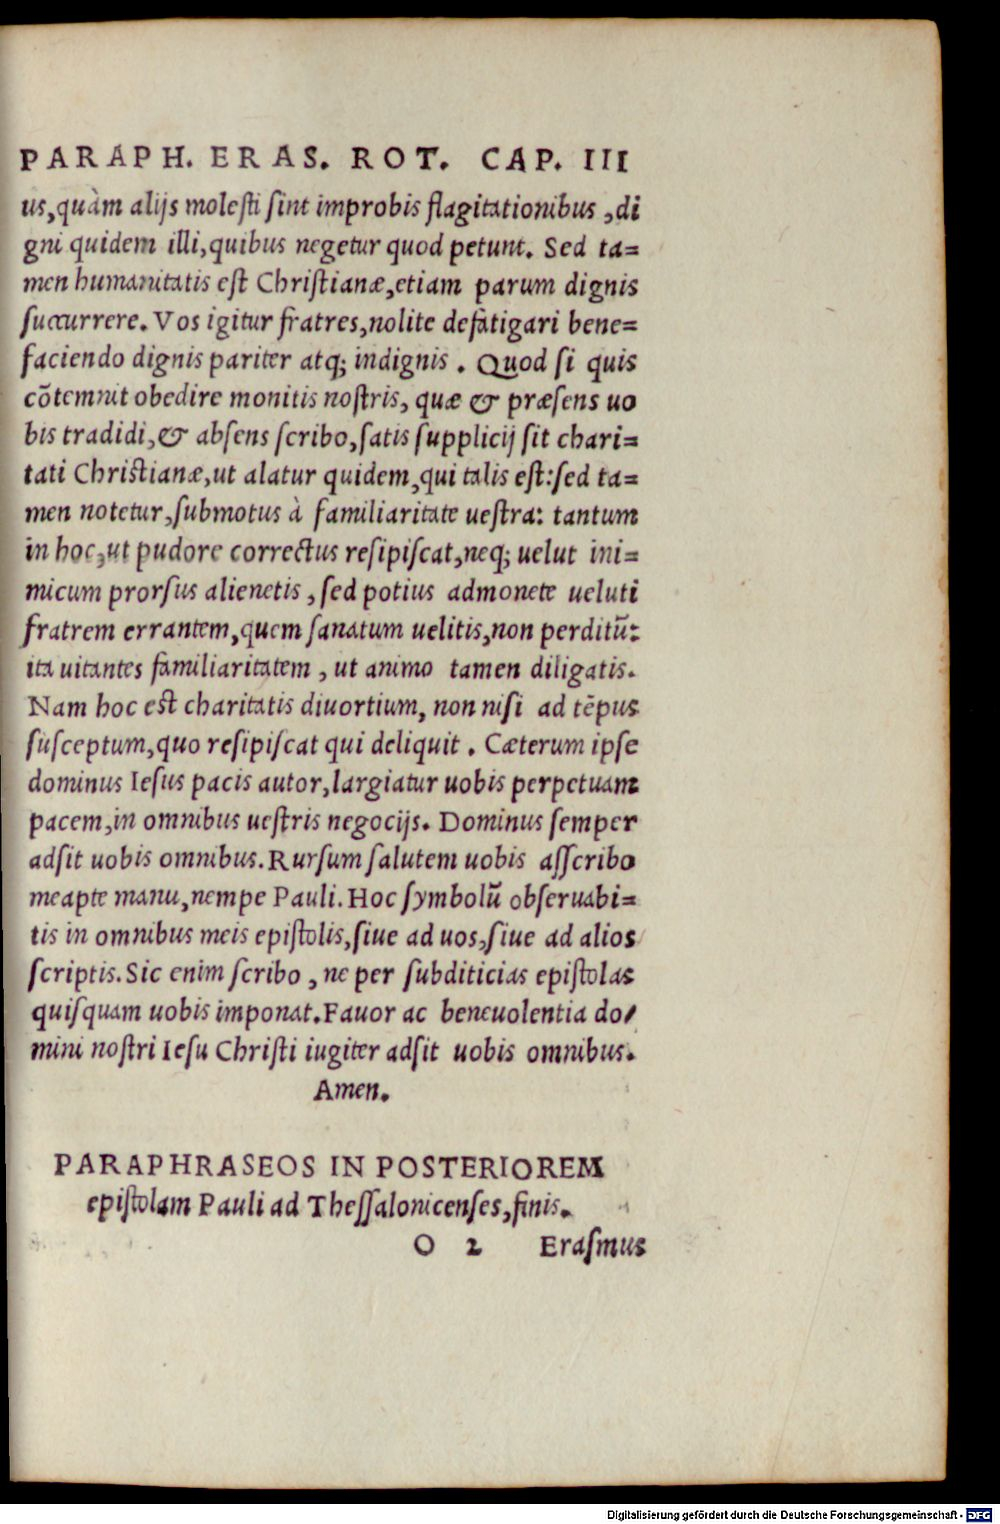 PARAPH. ERAS. ROT. CAP. III
us,quàm alijs molesti sint improbis flagitationibus ,di
gni quidem illi,quibus negetur quod petunt. Sed ta=
men humanitatis est Christianæ,etiam parum dignis
succurrere. Vos igitur fratres,nolite defatigari bene=
faciendo dignis pariter atq; indignis . Quod si quis
cōtemnit obedire monitis nostris, quæ & præsens uo
bis tradidi,& absens scribo,satis supplicij sit chari=
tati Christianæ,ut alatur quidem,qui talis est:sed ta=
men notetur,submotus à familiaritate uestra: tantum
in hoc,ut pudore correctus resipiscat,neq; uelut ini=
micum prorsus alienetis , sed potius admonete ueluti
fratrem errantem,quem sanatum uelitis,non perditū:
ita uitantes familiaritatem , ut animo tamen diligatis.
Nam hoc est charitatis diuortium, non nisi ad tēpus
susceptum,quo resipiscat qui deliquit . Cæterum ipse
dominus Iesus pacis autor,largiatur uobis perpetuam
pacem,in omnibus uestris negocijs. Dominus semper
adsit uobis omnibus. Rursum salutem uobis asscribo
meapte manu,nempe Pauli. Hoc symbolū obseruabi=
tis in omnibus meis epistolis,siue ad uos,siue ad alios
scriptis. Sic enim scribo , ne per subditicias epistolas
quisquam uobis imponat. Fauor ac beneuolentia do/
mini nostri Iesu Christi iugiter adsit uobis omnibus.
Amen.
PARAPHRASEOS IN POSTERIOREM
epistolam Pauli ad Thessalonicenses,finis.
O 2 Erasmus
Digitalisierung gefördert durch die Deutsche Forschungsgemeinschaft - DFG